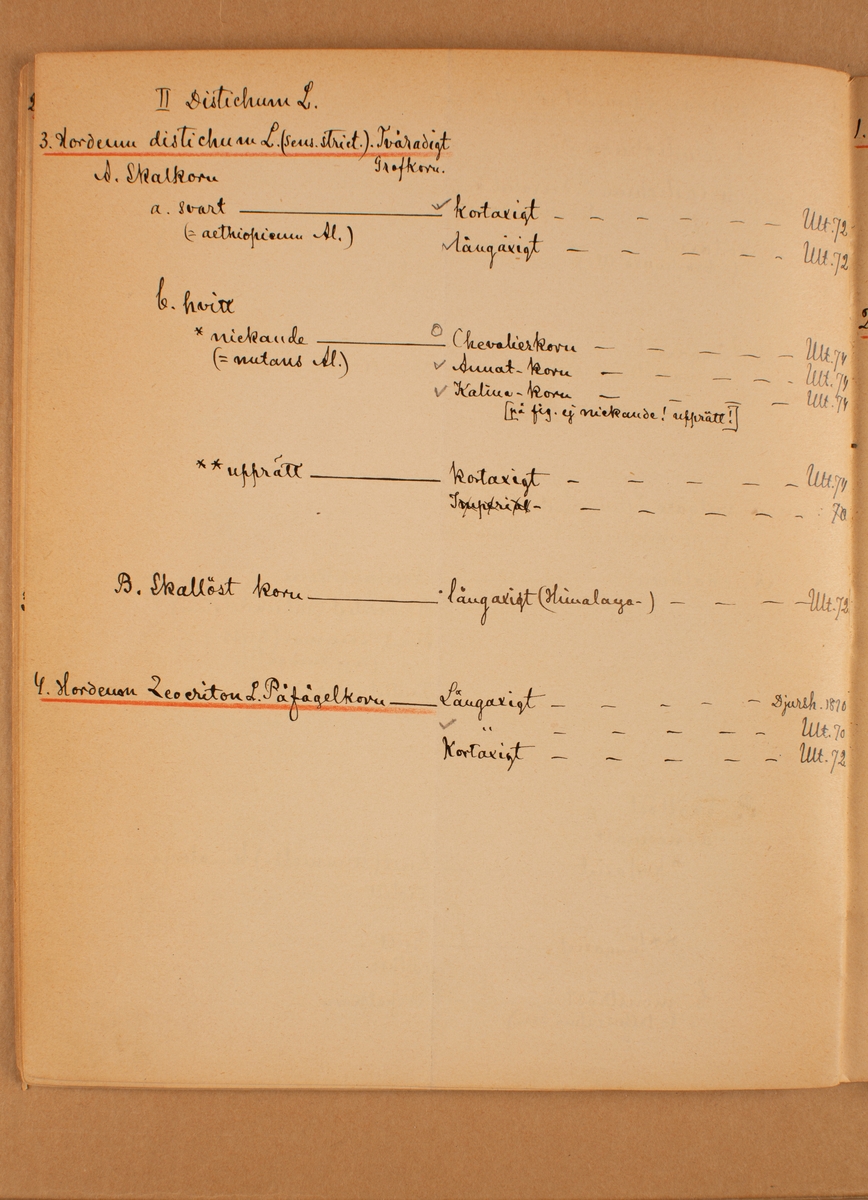 II Distichum L.
3. Hordeum distichum L. (sens. strict.). Tvåradigt
Grofkorn.
A. Skalkorn
a. svart — kortaxigt — — — — — Ult. 72
(= aethiopicum Al.) långaxigt — — — — Ult. 72
b. hvitt
* nickande — Chevalierkorn — — — — Ult. 74
(= nutans Al.) Annat-korn — — — — Ult. 74
Kalina-korn — — — — Ult. 74
[på fig. ej nickande! upprätt!]
** upprätt — kortaxigt — — — — — Ult. 74
Imperial- — — — — — 70
B. Skallöst korn — långaxigt (Himalaya-) — — — — Ult. 72
4. Hordeum Zeocriton L. Påfågelkorn — Långaxigt — — — — — Djursh. 1870
" — — — — — Ult. 70
Kortaxigt — — — — — Ult. 72